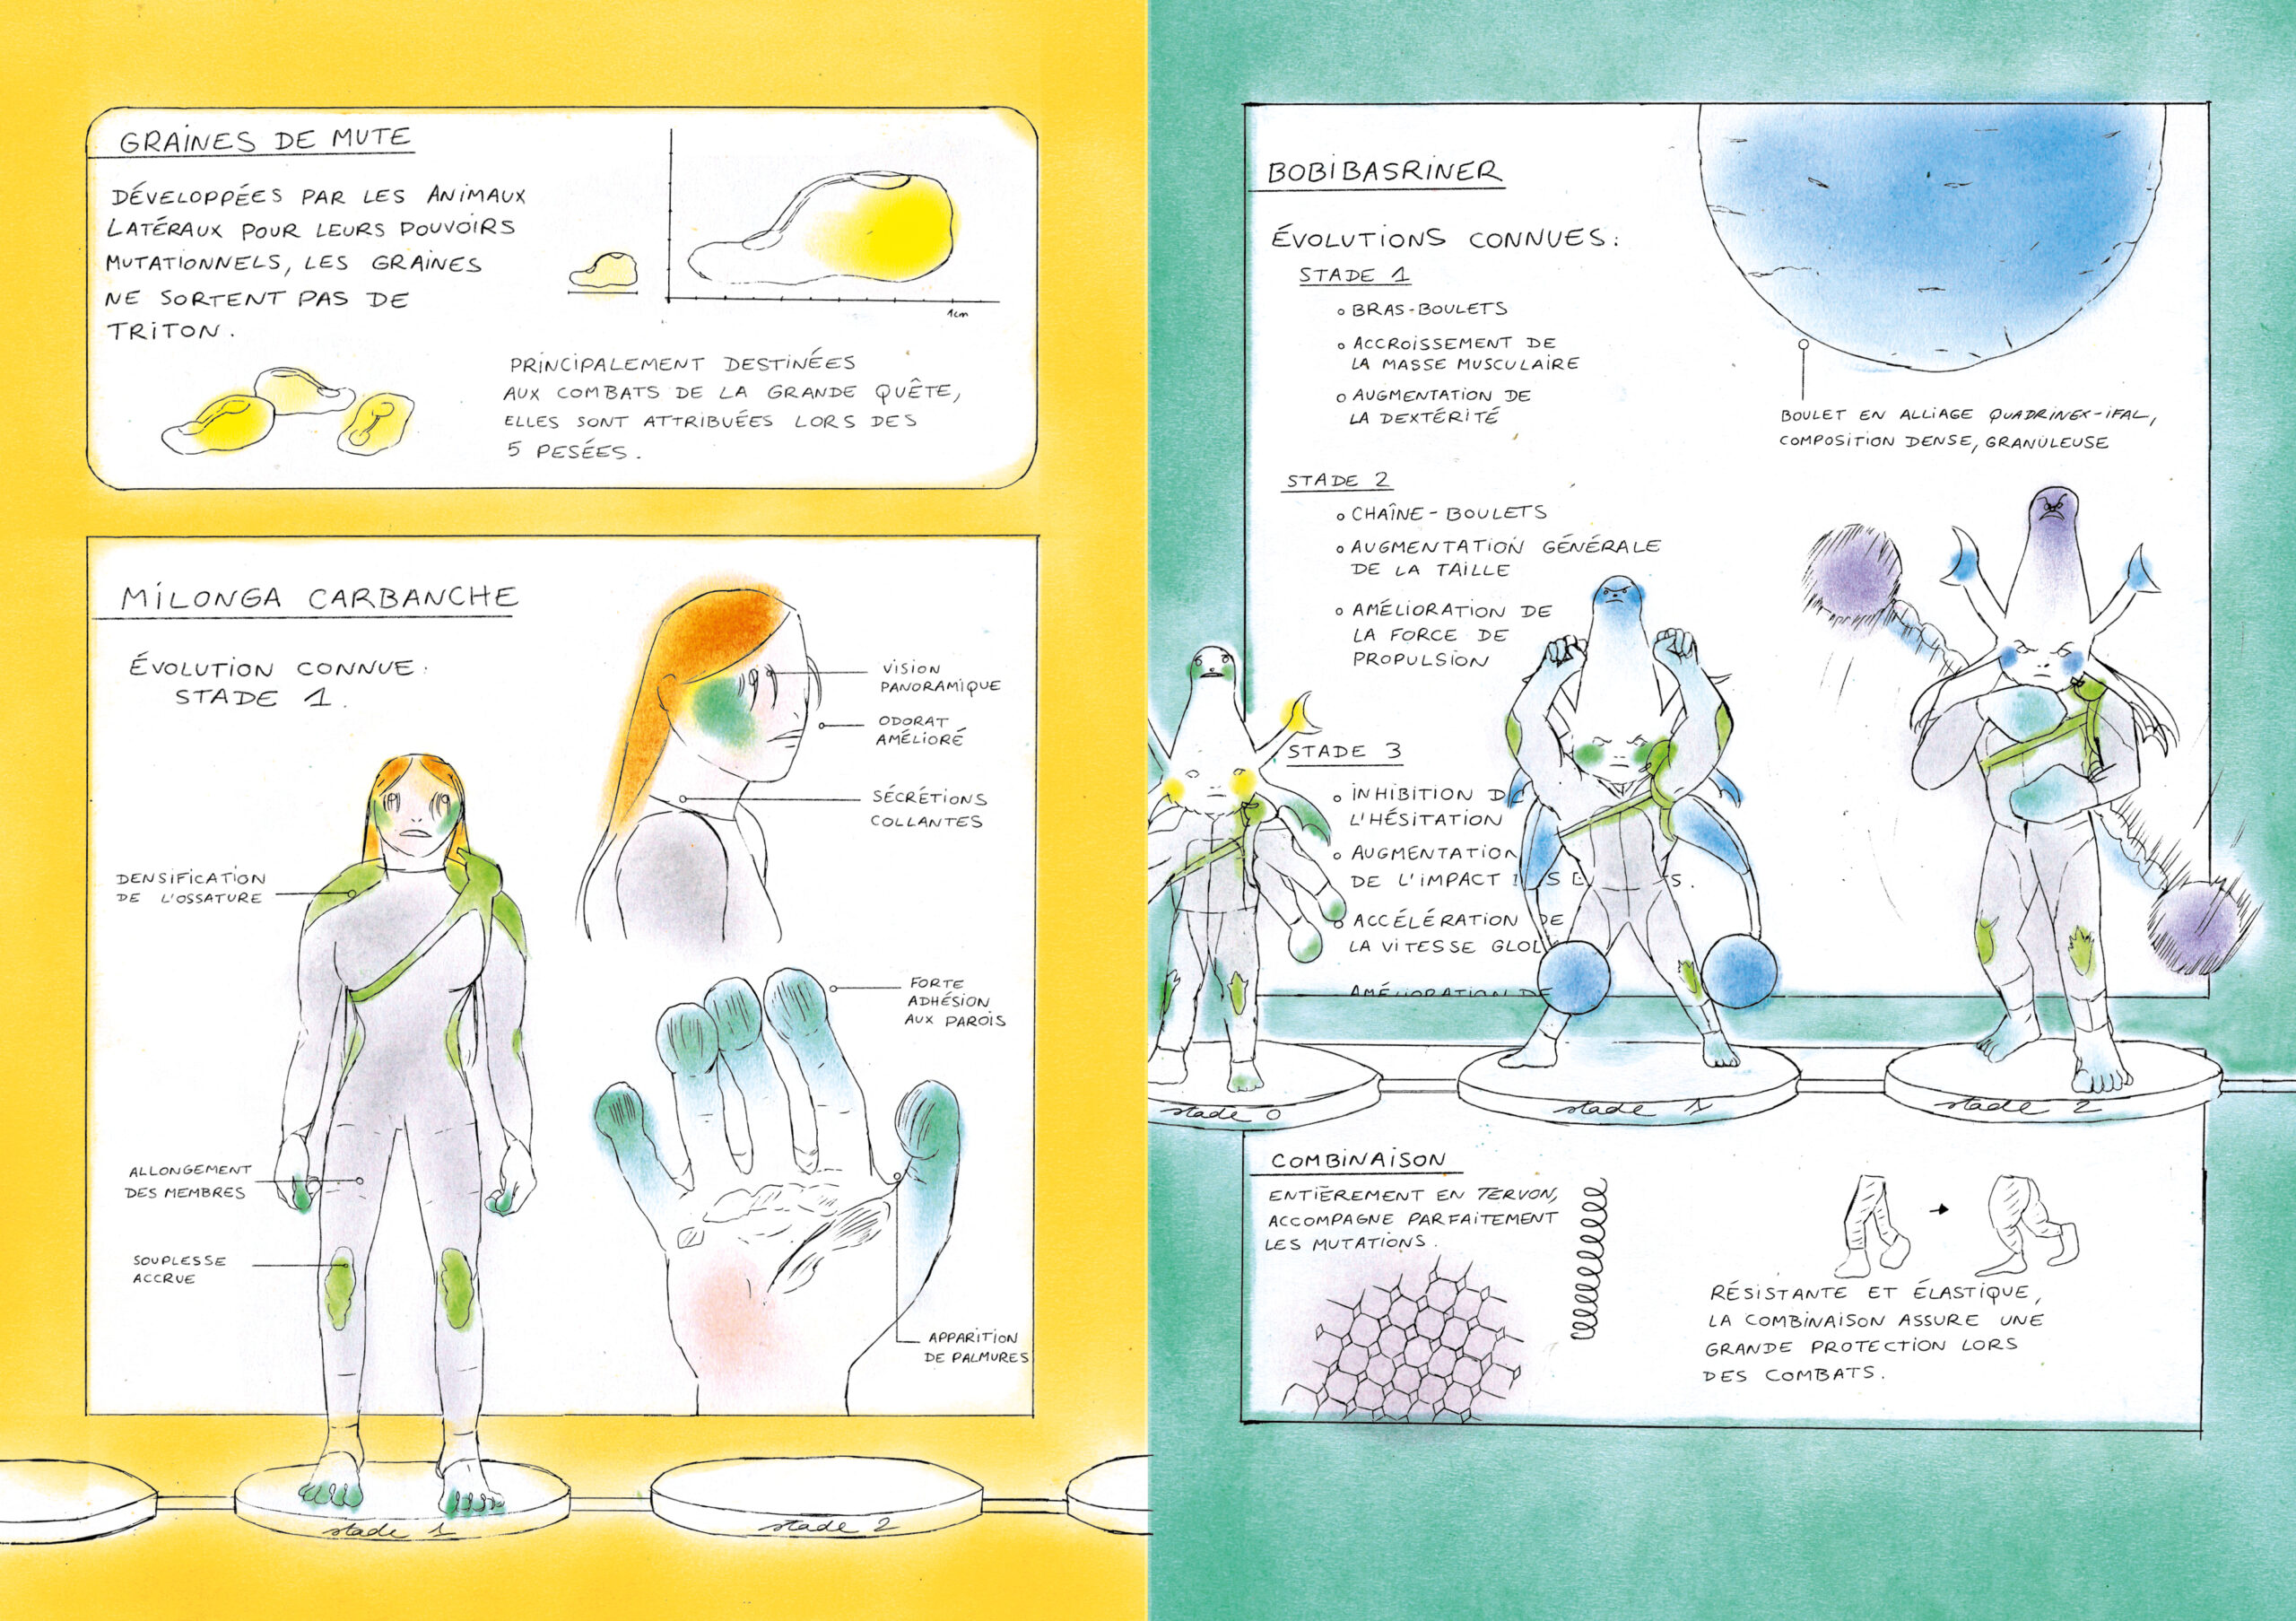 GRAINES DE MUTE
DÉVELOPPÉES PAR LES ANIMAUX
LATÉRAUX POUR LEURS POUVOIRS
MUTATIONNELS, LES GRAINES
NE SORTENT PAS DE
TRITON.
1cm
PRINCIPALEMENT DESTINÉES
AUX COMBATS DE LA GRANDE QUÊTE,
ELLES SONT ATTRIBUÉES LORS DES
5 PESÉES.
MILONGA CARBANCHE
ÉVOLUTION CONNUE:
STADE 1.
VISION
PANORAMIQUE
ODORAT
AMÉLIORÉ
SÉCRÉTIONS
COLLANTES
DENSIFICATION
DE L'OSSATURE
FORTE
ADHÉSION
AUX PAROIS
ALLONGEMENT
DES MEMBRES
SOUPLESSE
ACCRUE
APPARITION
DE PALMURES
stade 1
stade 2
BOBIBASRINER
ÉVOLUTIONS CONNUES:
STADE 1
BRAS-BOULETS
ACCROISSEMENT DE
LA MASSE MUSCULAIRE
AUGMENTATION DE
LA DEXTÉRITÉ
BOULET EN ALLIAGE QUADRINEX-IFAL,
COMPOSITION DENSE, GRANULEUSE
STADE 2
CHAÎNE-BOULETS
AUGMENTATION GÉNÉRALE
DE LA TAILLE
AMÉLIORATION DE
LA FORCE DE
PROPULSION
STADE 3
INHIBITION D
L'HÉSITATION
AUGMENTATION
DE L'IMPACT
ACCÉLÉRATION DE
LA VITESSE GLO
AMÉLIORATION DE
stade 0
stade 1
stade 2
COMBINAISON
ENTIÈREMENT EN TERVON,
ACCOMPAGNE PARFAITEMENT
LES MUTATIONS.
RÉSISTANTE ET ÉLASTIQUE,
LA COMBINAISON ASSURE UNE
GRANDE PROTECTION LORS
DES COMBATS.